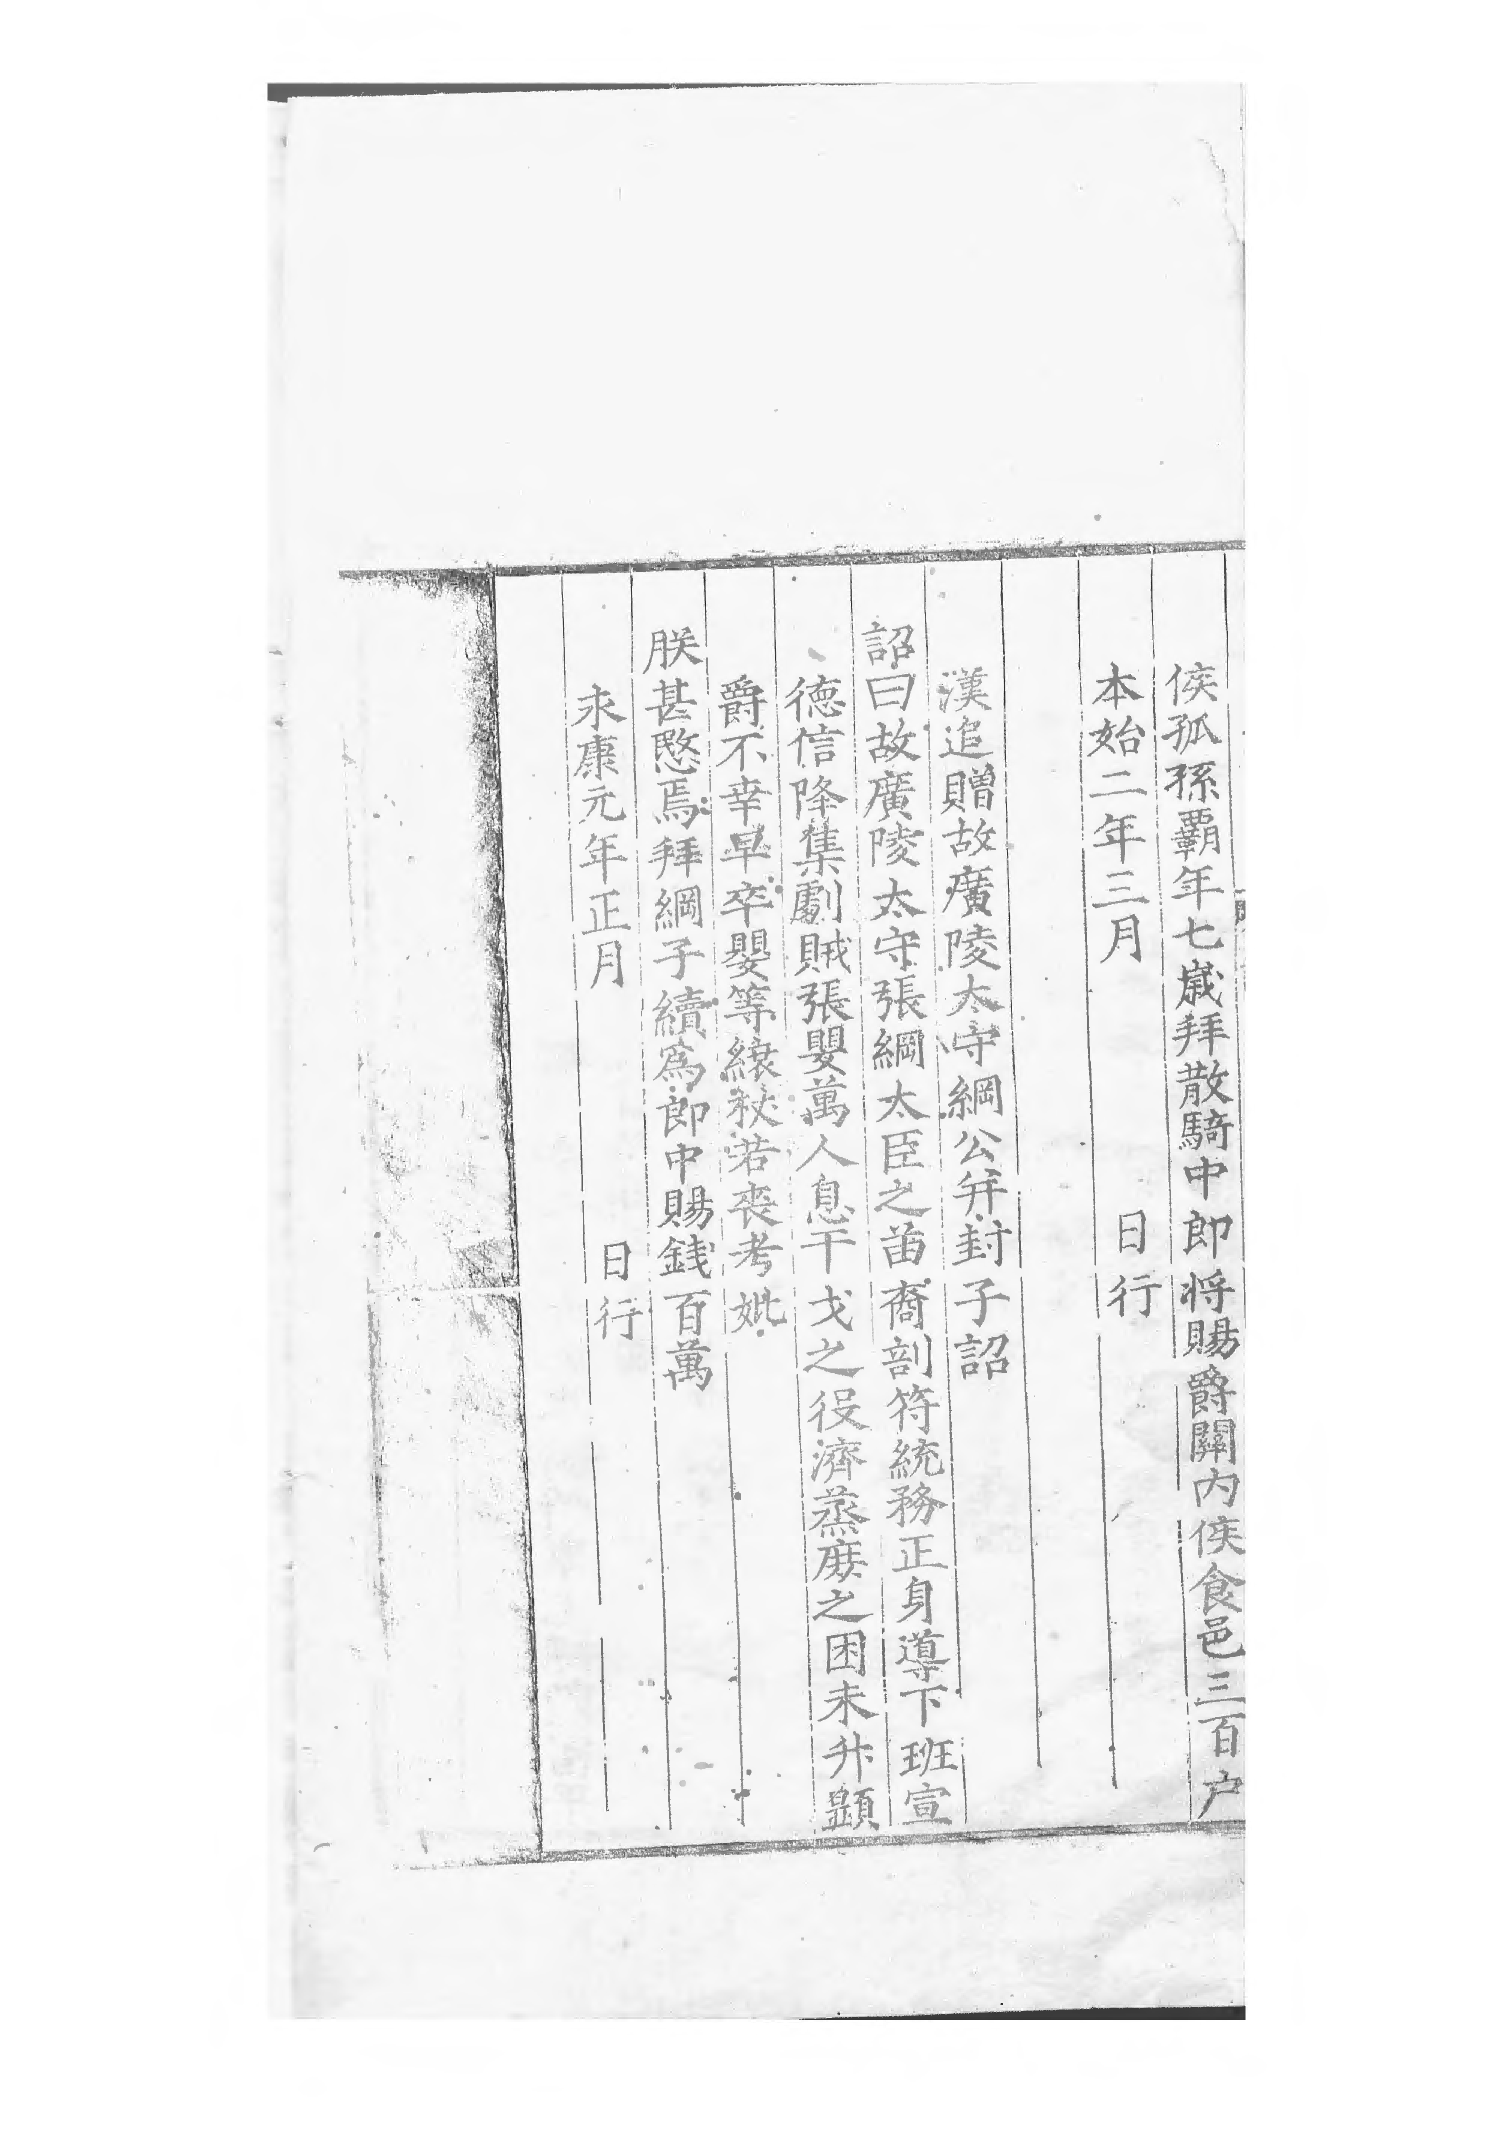 侯孤孫霸年七歳拜散騎中郎将賜爵關内侯食邑三百户
本始二年三月　日行
漢追贈故廣陵太守綱公并封子詔
詔曰故廣陵太守張綱大臣之苗裔剖符統務正身導下班宣
德信降集劇賊張嬰萬人息干戈之役濟蒸庻之困未升顕
爵不幸早卒嬰等縗杖若喪考妣
朕甚愍焉拜綱子續爲郎中賜銭百萬
永康元年正月　日行